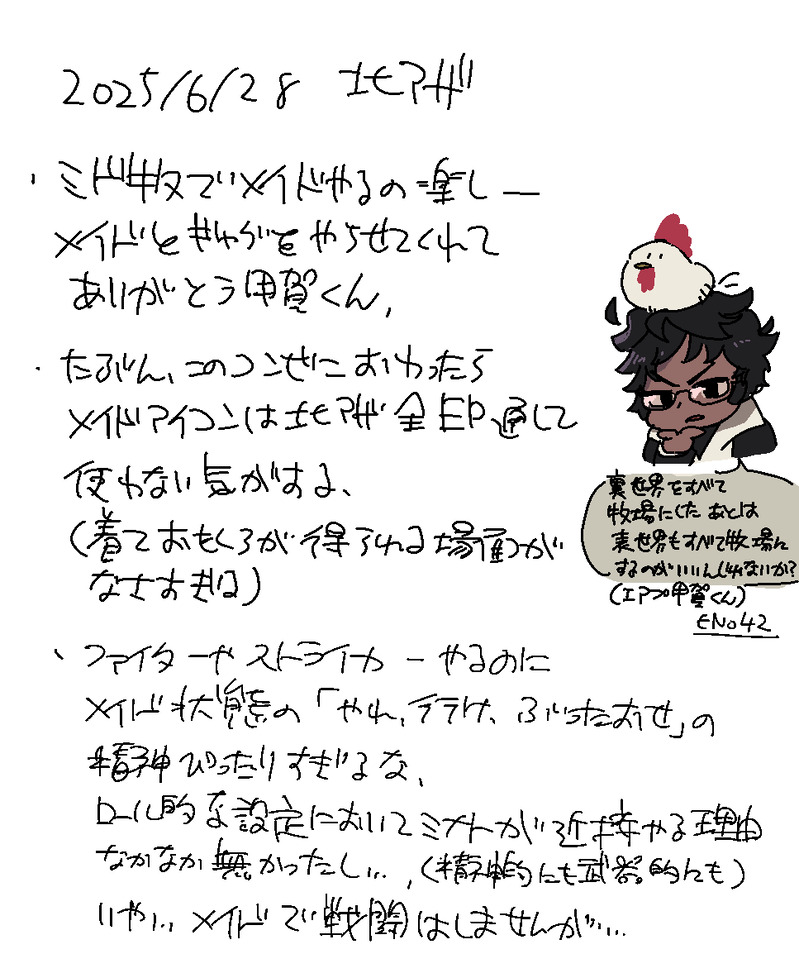 2025/6/28 北アザ
・ミド牧でメイドやるの楽しー
メイドとぎゅうぎゅうをやらせてくれて
ありがとう甲賀くん、
・たぶん、このコンゼに おわったら
メイドアイコンは北アザ全EP通して
使わない気がする、
(着ておもくろが得られる場面が
なさすぎる)
・ファイターや ストライカーやるのに
メイド状態の「やれ、行け、ぶったおせ」の
精神ぴったりすぎるな、
ロール的な設定においてミナトが近接やる理由
なかなか無かったし…、(精神的にも武器的にも)
いや… メイドで戦闘はしませんが…
裏世界をすべて
牧場にしたあとは
裏世界もすべて牧場に
するのがいいんじゃないか?
(エアプ甲賀くん)
ENo42